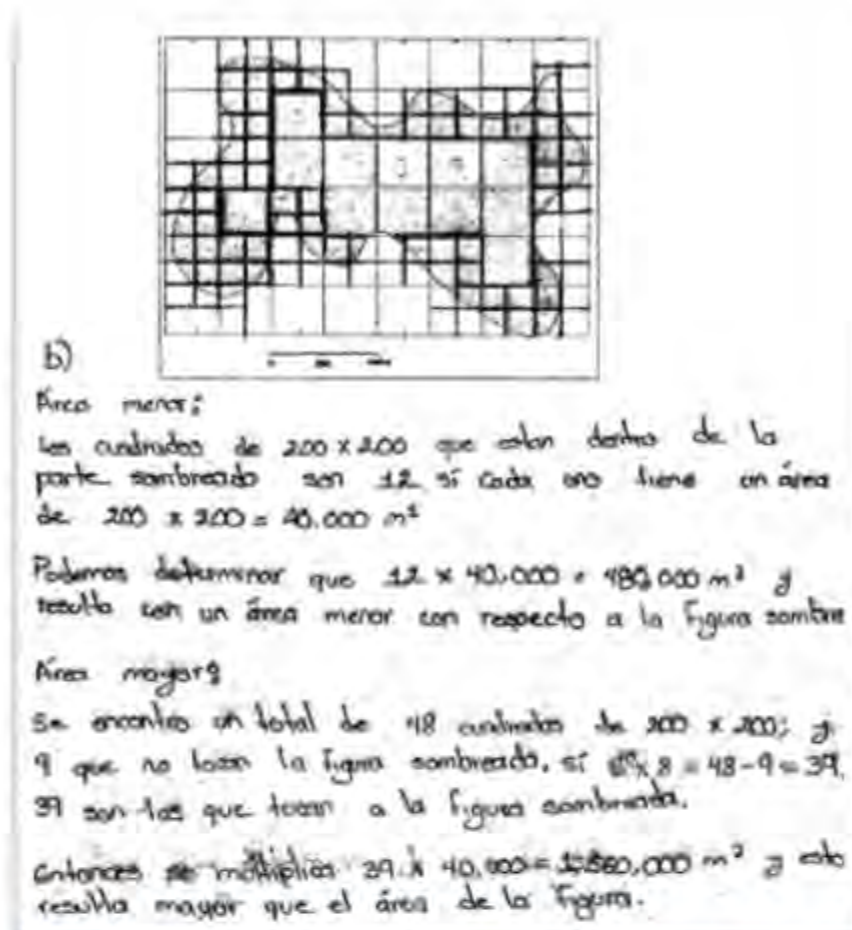 b)
Área menor:
Los cuadrados de 200 x 200 que estan dentro de la
parte sombreado son 12 sí cada uno tiene un área
de 200 x 200 = 40.000 m²
Podemos determinar que 12 x 40,000 = 480,000 m² y
resulta con un área menor con respecto a la Figura sombre
Área mayor:
Se encontro un total de 48 cuadrados de 200 x 200; y
9 que no tocan la Figura sombreado, sí x 8 = 48 - 9 = 39.
39 son los que tocan a la Figura sombreada.
Entonces se multiplica 39 x 40,000 = 1,560,000 m² y esto
resulta mayor que el área de la Figura.